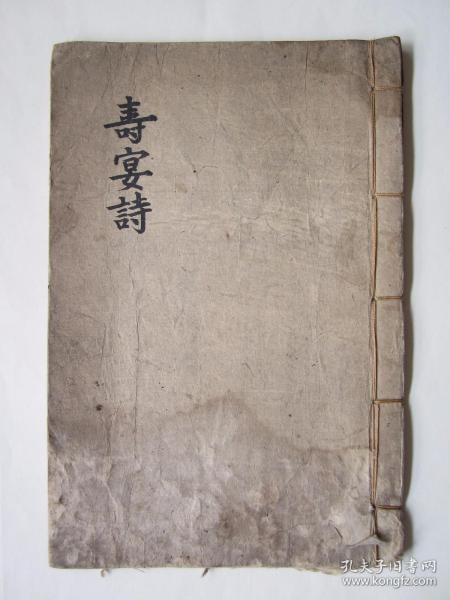 寿宴詩
孔夫子旧书网
www.kongfz.com